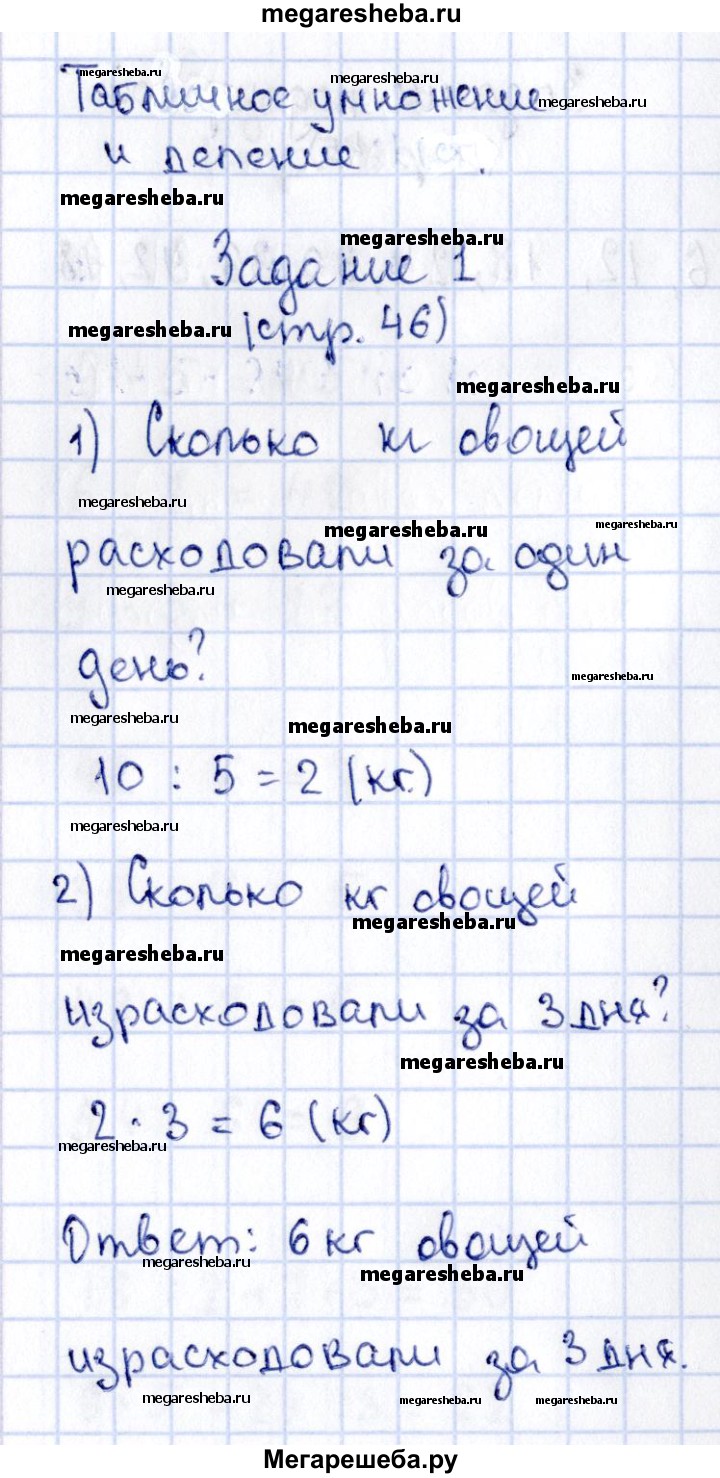 megaresheba.ru
megaresheba.ru
megaresheba.ru
Табличное умножение
megaresheba.ru
и деление
megaresheba.ru
megaresheba.ru
Задание 1
megaresheba.ru
(стр. 46)
megaresheba.ru
1) Сколько кг овощей
megaresheba.ru
megaresheba.ru
megaresheba.ru
расходовали за один
megaresheba.ru
день?
megaresheba.ru
megaresheba.ru
megaresheba.ru
10 : 5 = 2 (кг)
megaresheba.ru
2) Сколько кг овощей
megaresheba.ru
megaresheba.ru
израсходовали за 3 дня?
megaresheba.ru
2 · 3 = 6 (кг)
megaresheba.ru
Ответ: 6 кг овощей
megaresheba.ru
megaresheba.ru
израсходовали за 3 дня.
megaresheba.ru
megaresheba.ru
megaresheba.ru
Мегарешеба.ру